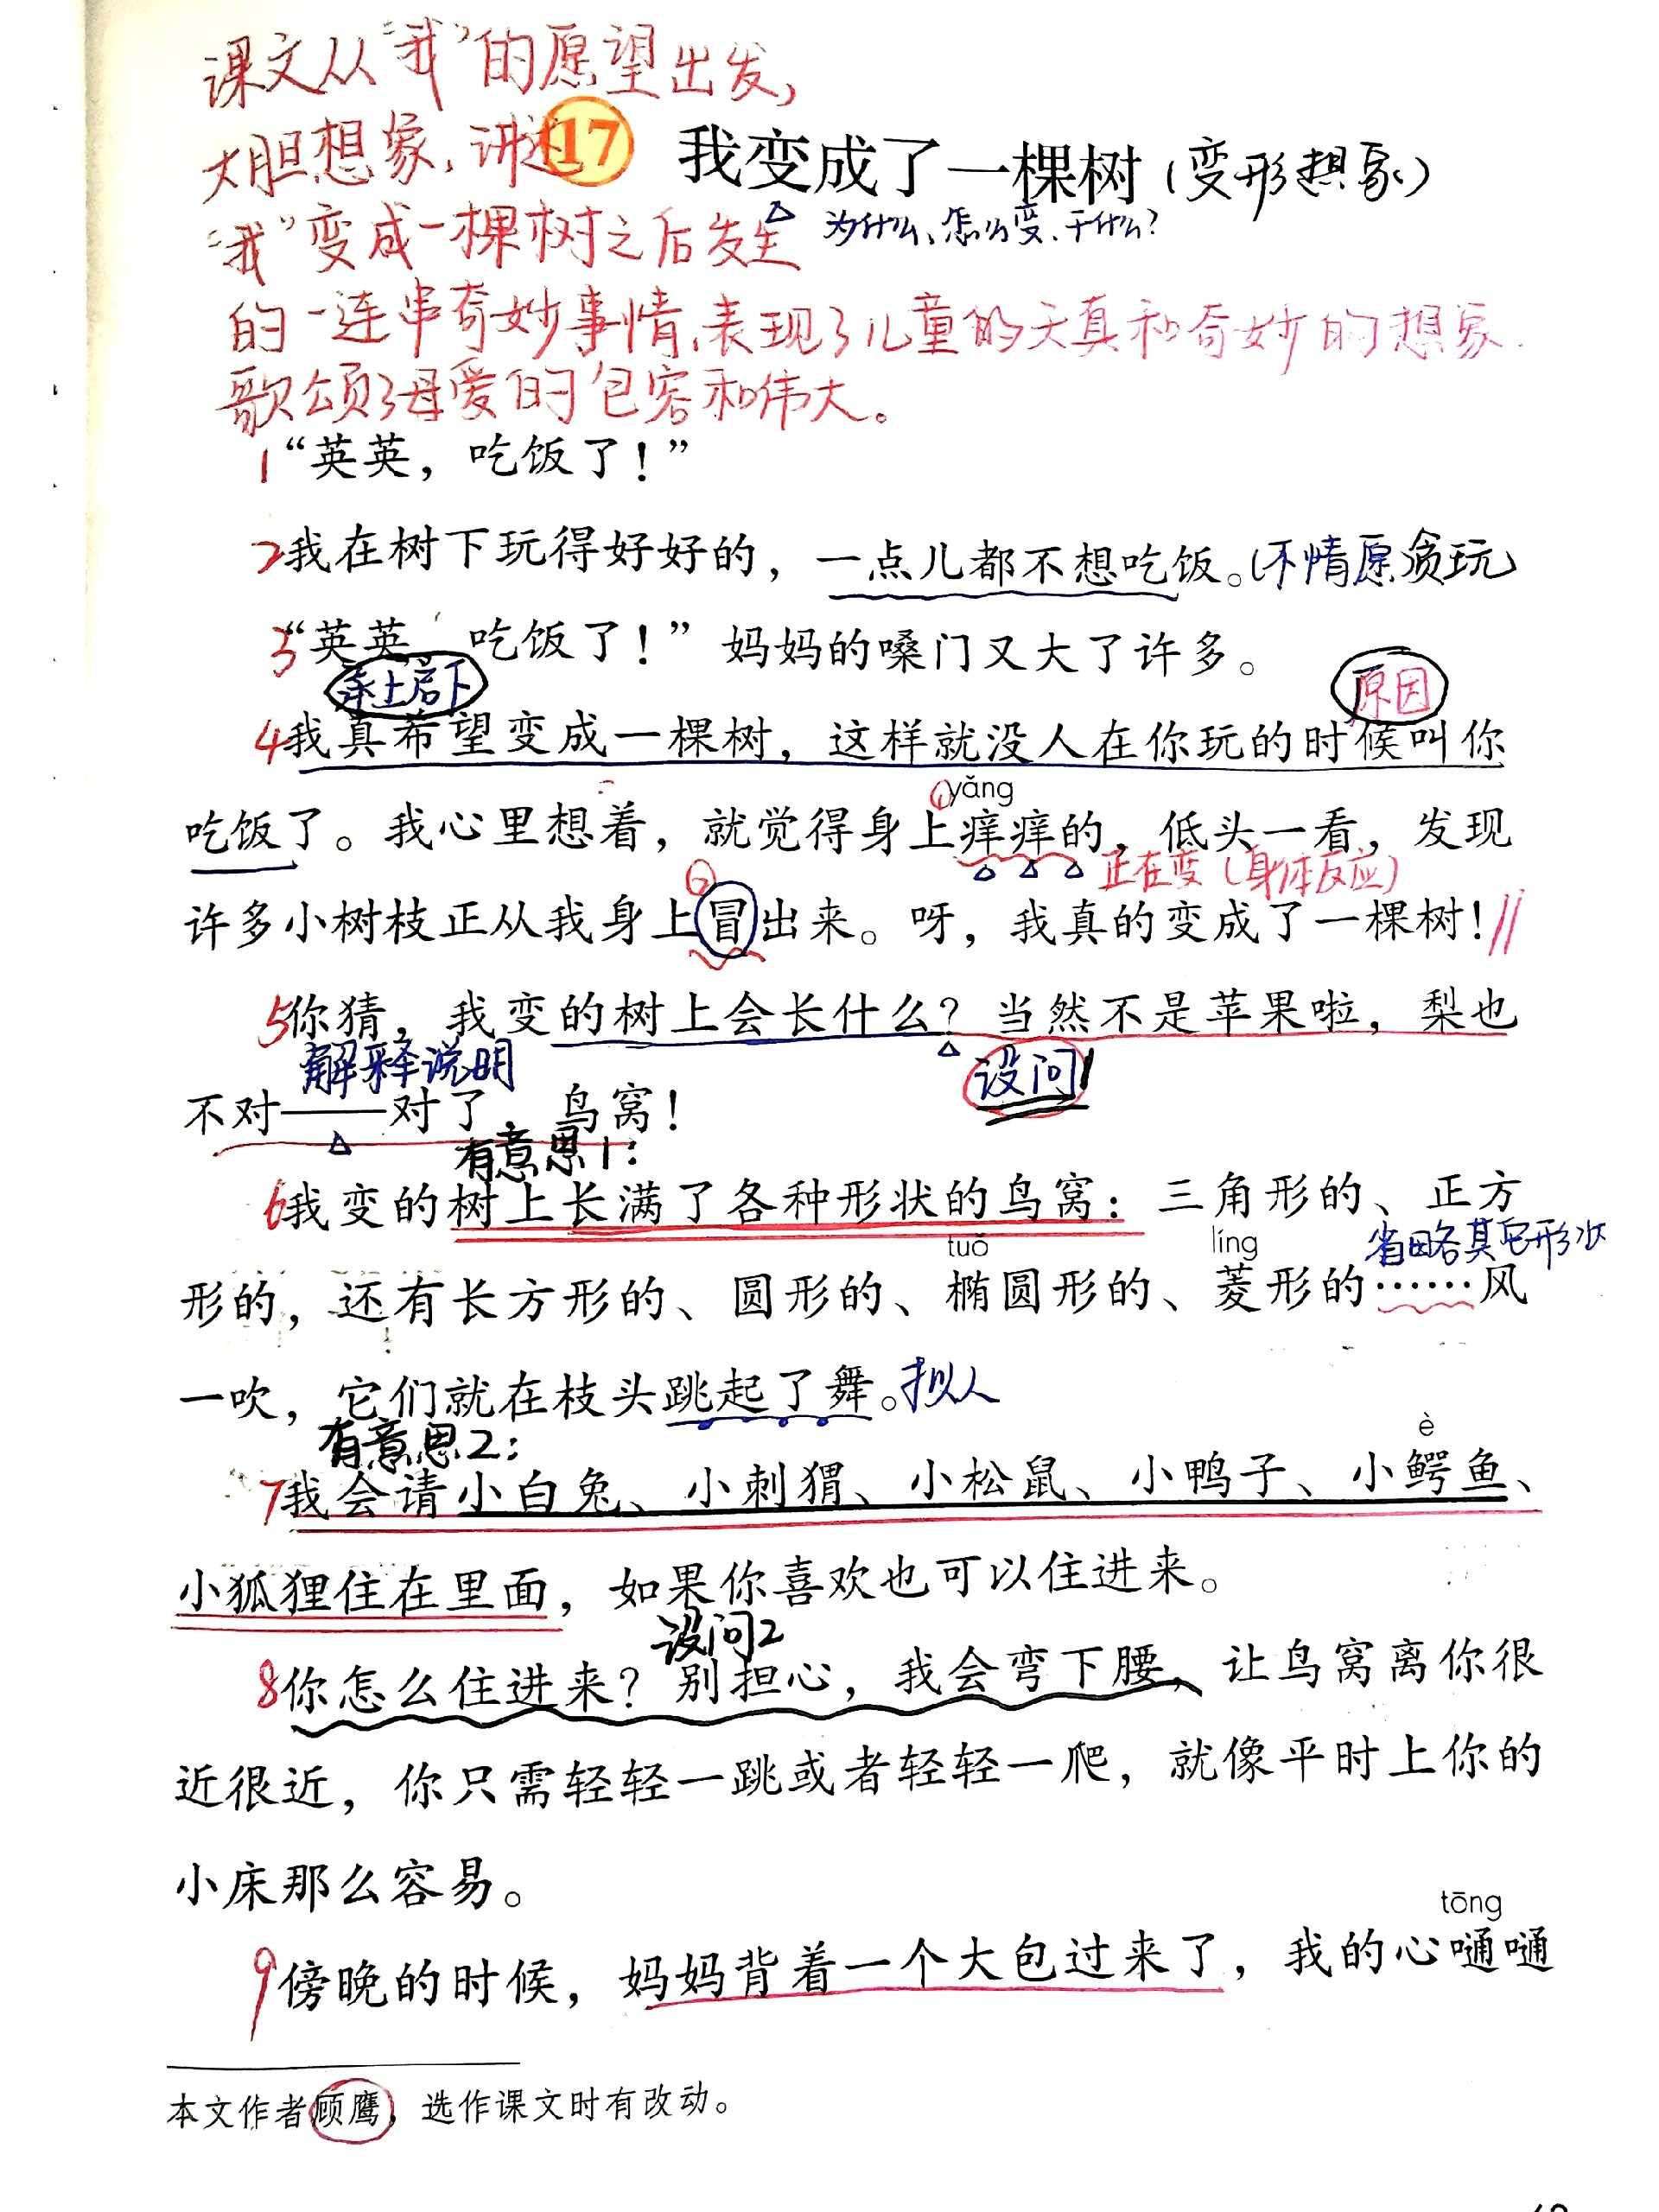 课文从“我”的愿望出发，
大胆想象，讲述
17 我变成了一棵树（变形想象）
“我”变成一棵树之后发生
为什么、怎么变、干什么？
的一连串奇妙事情，表现了儿童的天真和奇妙的想象.
歌颂了母爱的包容和伟大。
1“英英，吃饭了！”
2我在树下玩得好好的，一点儿都不想吃饭。（不情愿贪玩）
3“英英，吃饭了！”妈妈的嗓门又大了许多。
承上启下 原因
4我真希望变成一棵树，这样就没人在你玩的时候叫你
yǎng
吃饭了。我心里想着，就觉得身上痒痒的，低头一看，发现
正在变（身体反应）
许多小树枝正从我身上冒出来。呀，我真的变成了一棵树！
5你猜，我变的树上会长什么？当然不是苹果啦，梨也
解释说明 设问1
不对——对了，鸟窝！
有意思1：
6我变的树上长满了各种形状的鸟窝：三角形的、正方
tuǒ líng 省略其它形状
形的，还有长方形的、圆形的、椭圆形的、菱形的……风
一吹，它们就在枝头跳起了舞。拟人
有意思2： è
7我会请小白兔、小刺猬、小松鼠、小鸭子、小鳄鱼、
小狐狸住在里面，如果你喜欢也可以住进来。
设问2
8你怎么住进来？别担心，我会弯下腰，让鸟窝离你很
近很近，你只需轻轻一跳或者轻轻一爬，就像平时上你的
小床那么容易。
tōng
9傍晚的时候，妈妈背着一个大包过来了，我的心嗵嗵
本文作者顾鹰，选作课文时有改动。